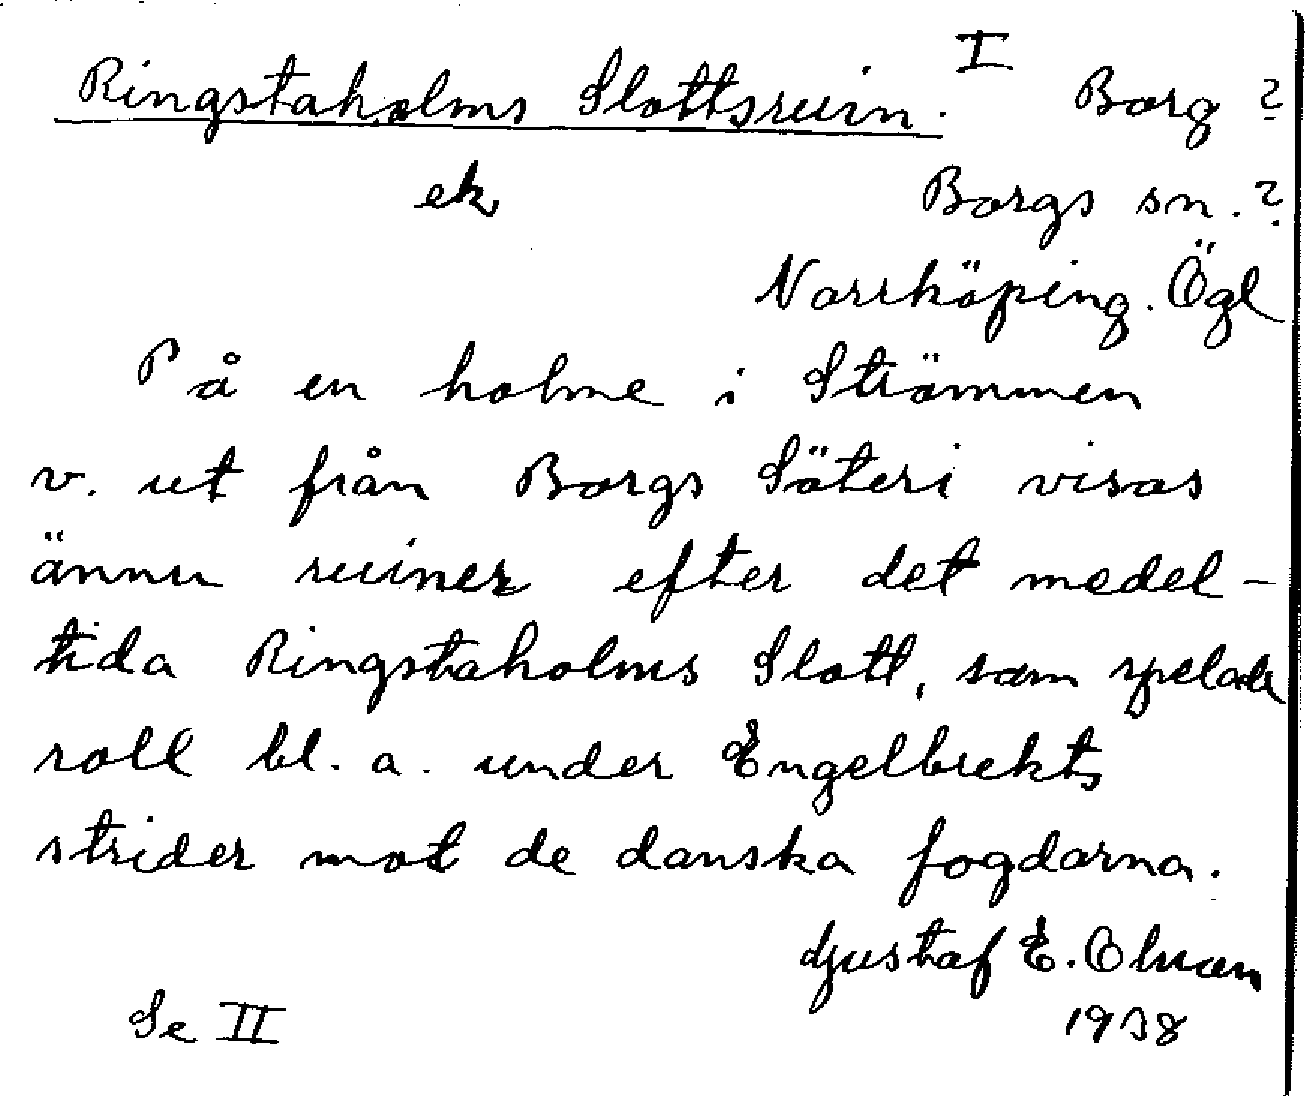 Ringstaholms Slottsruin. I Borg ?
ek Borgs sn. ?
Norrköping. Ögl
På en holme i Strömmen
v. ut från Borgs Säteri visas
ännu ruiner efter det medel-
tida Ringstaholms Slott, som spelade
roll bl. a. under Engelbrekts
strider mot de danska fogdarna.
Gustaf E. Olsson
Se II 1938